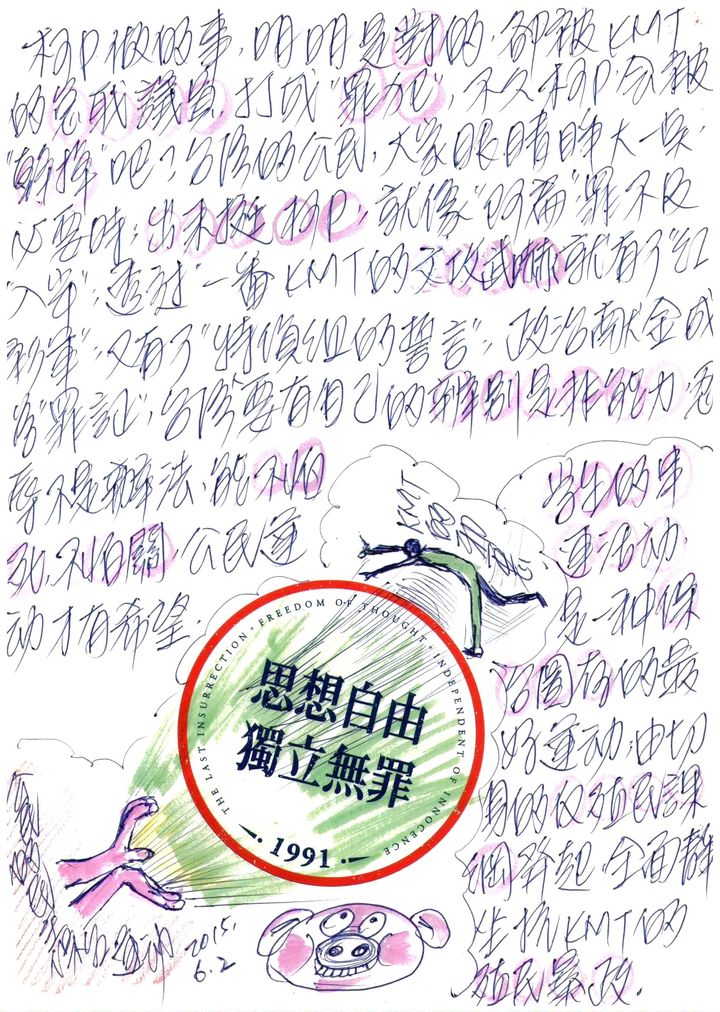 柯P做的事，明明是對的，卻被KMT
的急成議員，打成"罪犯"，不久柯P会被
"幹掉"吧？台灣的公民，大家眼睛睜大一点，
必要時，出來挺柯P，就像"阿扁"罪不及
"入牢"，透过一番KMT的文攻武嚇，就有了"紅
衫軍"，又有了"特偵組的誓言"，政治献金成
为"罪証"，台湾要有自己的辨别是非能力，忍
辱不是辦法，能不怕
死，不怕關，公民運
动才有希望。
KMT
学生的串
連活动，
是一种保
台圖存的最
好運动，由切
身的反殖民課
綱發起，全面群
生抗KMT的
殖民暴政。
THE LAST INSURRECTION · FREEDOM OF THOUGHT · INDEPENDENT OF INNOCENCE
思想自由
獨立無罪
1991
2015.
6.2